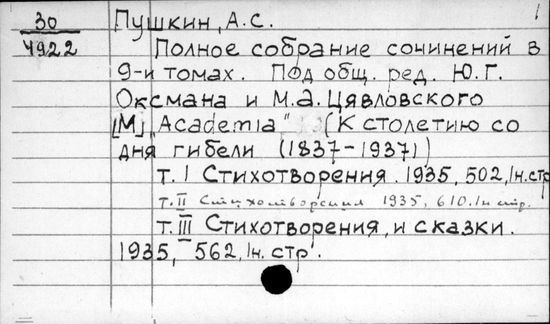 30
4922
Пушкин, А.С.
Полное собрание сочинений в
9-и томах. Под общ. ред. Ю.Г.
Оксмана и М.А. Цявловского
[М] „Academia" (К столетию со
дня гибели (1837-1937))
т. I Стихотворения. 1935, 502, 1н. стр
т. II Стихотворения 1935, 610. 1н стр.
т. III Стихотворения, и сказки.
1935, 562, 1н. стр.